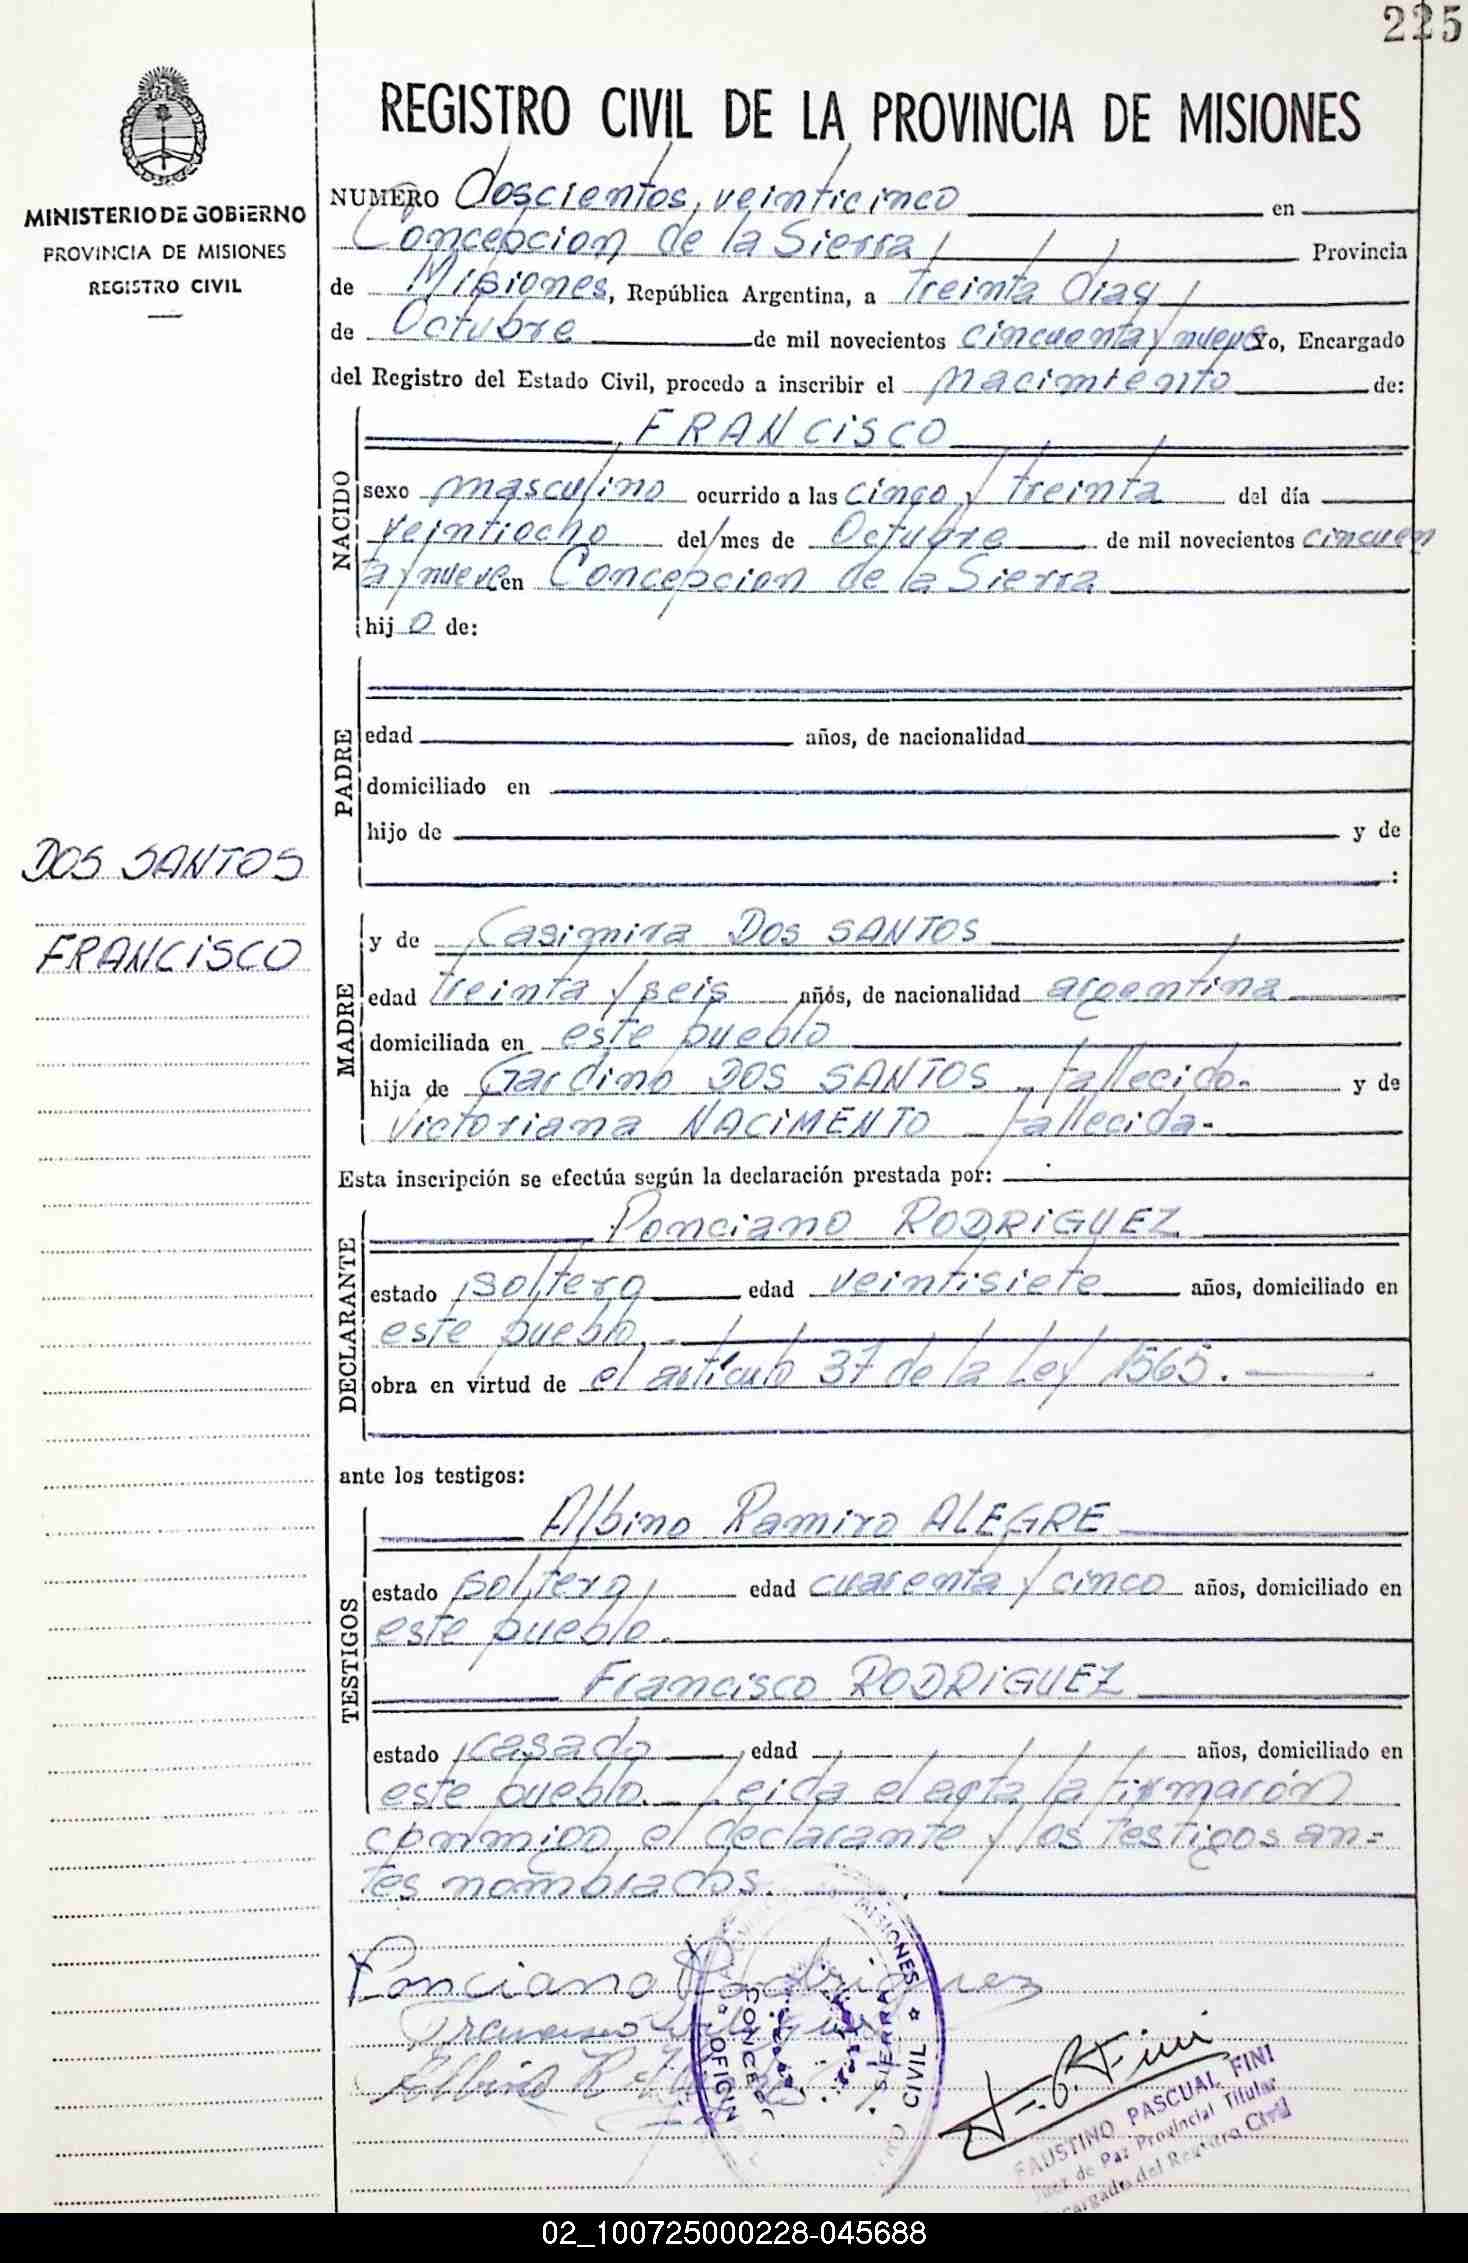 225
REGISTRO CIVIL DE LA PROVINCIA DE MISIONES
MINISTERIO DE GOBIERNO
PROVINCIA DE MISIONES
REGISTRO CIVIL
NUMERO Doscientos veinticinco en
Concepcion de la Sierra Provincia
de Misiones, República Argentina, a treinta dias
de Octubre de mil novecientos cincuenta y nueve Yo, Encargado
del Registro del Estado Civil, procedo a inscribir el nacimiento de:
NACIDO
FRANCISCO
sexo masculino ocurrido a las cinco y treinta del día
veintiocho del mes de Octubre de mil novecientos cincuen
ta y nueve en Concepcion de la Sierra
hij o de:
PADRE
edad años, de nacionalidad
domiciliado en
hijo de y de
:
DOS SANTOS
FRANCISCO
MADRE
y de Casimira DOS SANTOS
edad treinta y seis años, de nacionalidad argentina
domiciliada en este pueblo
hija de Gardino DOS SANTOS - fallecido.- y de
Victoriana NACIMENTO - fallecida.-
Esta inscripción se efectúa según la declaración prestada por:
DECLARANTE
Ponciano RODRIGUEZ
estado soltero edad veintisiete años, domiciliado en
este pueblo.-
obra en virtud de el artículo 37 de la Ley 1565.
ante los testigos:
TESTIGOS
Albino Ramiro ALEGRE
estado soltero edad cuarenta y cinco años, domiciliado en
este pueblo.
Francisco RODRIGUEZ
estado casado edad años, domiciliado en
este pueblo.- Leida el acta la firmarón
conmigo el declarante y los testigos an=
tes nombrados.
Ponciano Rodriguez
Albino R
F. P. Fini
MISIONES ☆ CIVIL
SIERRA
CONCEPC
OFICIN
FAUSTINO PASCUAL FINI
Juez de Paz Provincial Titular
Encargado del Registro Civil
02_100725000228-045688